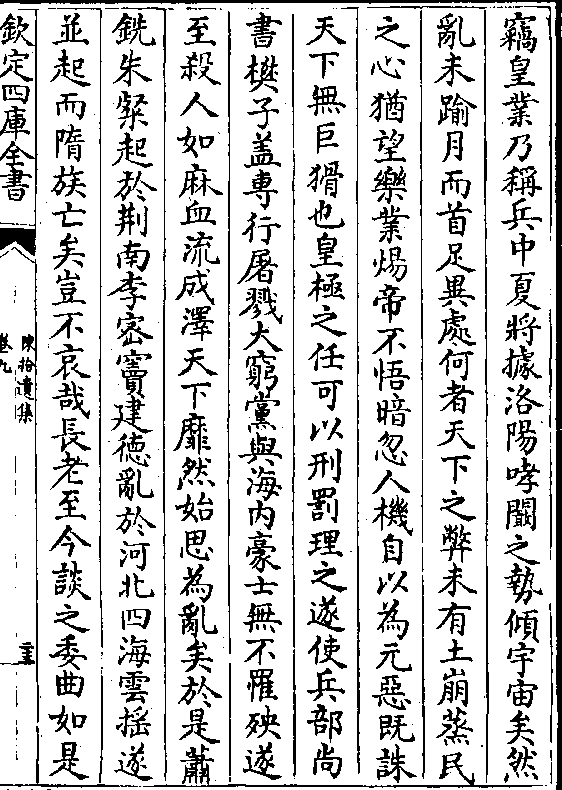 竊皇業乃稱兵中夏將據洛陽哮闞之勢傾宇宙矣然
亂未踰月而首足異處何者天下之弊未有土崩蒸民
之心猶望樂業煬帝不悟暗忽人機自以為元惡既誅
天下無巨猾也皇極之任可以刑罰理之遂使兵部尚
書樊子葢專行屠戮大窮黨與海内豪士無不罹殃遂
至殺人如麻血流成澤天下靡然始思為亂矣於是蕭
銑朱粲起於荆南李密竇建徳亂於河北四海雲揺遂
並起而隋族亡矣豈不哀哉長老至今談之委曲如是
欽定四庫全書
陳拾遺集
卷九